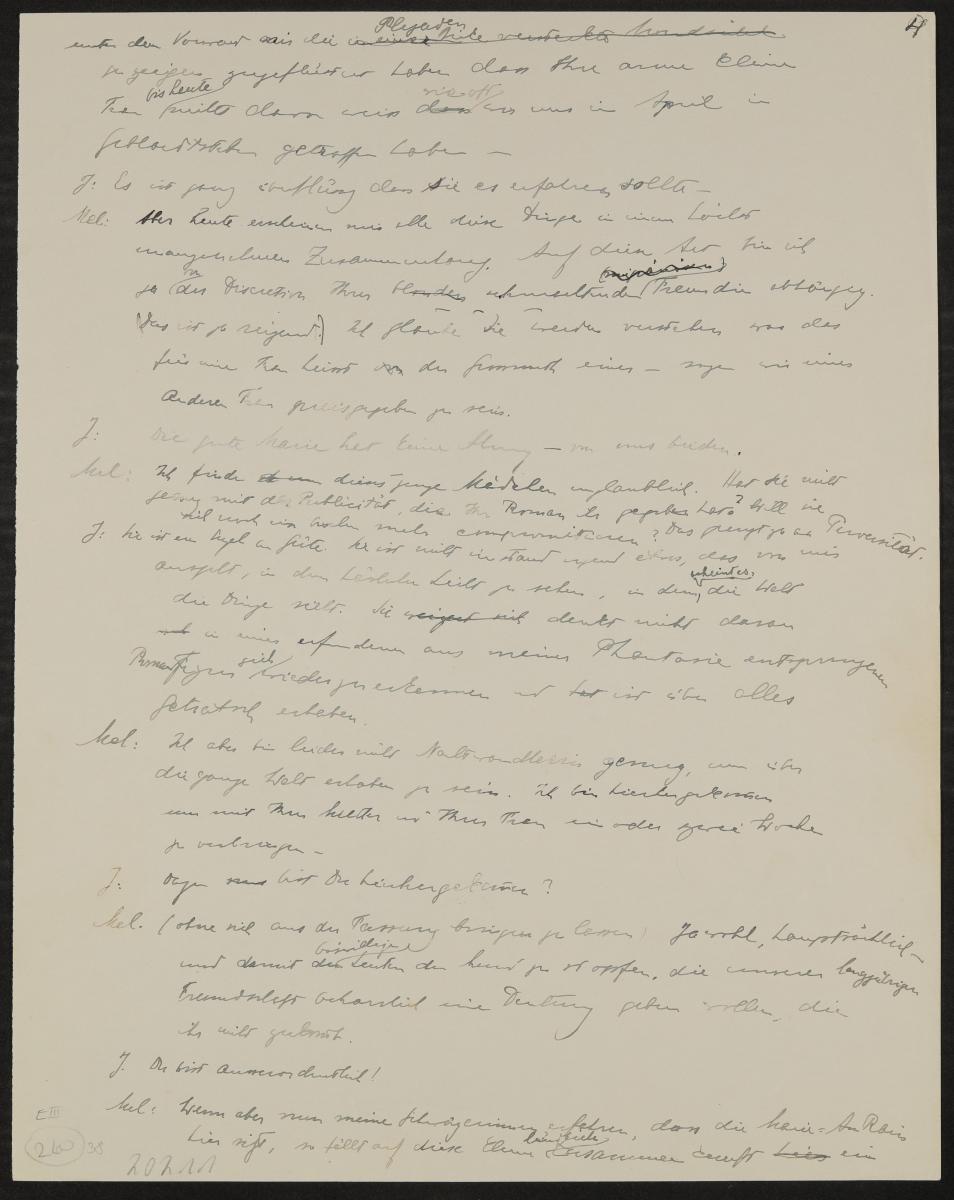 4
Plejaden
unter dem Vorwand mir die
zu zeigen zugeflüstert haben dass Ihre arme kleine
bis heute wie oft
Frau nichts davon weiss wir uns im April in
getroffen haben —
J: Es ist ganz dass sie es erfahren sollte —
Mel: Aber heute erscheinen mir alle diese Dinge in einem höchst
unangenehmen Zusammenhang. Auf diese Art bin ich
ja von der Discretion Ihrer schmachtenden Freundin abhängig.
(Das ist ja reizend.) Ich glaube Sie werden verstehen was das
für eine Frau heisst von der Grossmuth eines — sagen wir einer
anderen Frau preisgegeben zu sein.
J: Die gute Marie hat keine Ahnung — von uns beiden.
Mel: Ich finde dieses junge Mädchen unglaublich. Hat sie nicht
genug mit der Publicität, die Ihr Roman ihr gegeben hat? Will sie
sich noch ein mehr compromittieren? Das grenzt ja an Perversität.
J: Sie ist ein Engel an Güte. Sie ist nicht imstand irgend etwas, das von mir
ausgeht, in dem Lichte zu sehen, in dem die Welt
scheint es
die Dinge sieht. Sie denkt nicht daran
in einer erfundenen aus meiner Phantasie entsprungenen
Romanfigur sich wiederzuerkennen und ist über alles
Getratsch erhaben.
Mel: Ich aber bin leider nicht genug, um über
die ganze Welt erhaben zu sein. Ich bin hierhergekommen
um mit Ihrer Mutter und Ihrer Frau ein oder zwei Wochen
zu verbringen —
J: Dazu bist Du hierhergekommen?
Mel. (ohne sich aus der Fassung bringen zu lassen) Jawohl, hauptsächlich —
böswilligen
und damit den Leuten den Mund zu stopfen, die unserer langjährigen
Freundschaft beharrlich eine Deutung geben wollen, die
ihr nicht zukommt.
J. Du bist ausserordentlich!
Mel: Wenn aber nun meine Schwägerinnen erfahren, dass die Marie
hier sitzt, so fällt auf diese Zusammenkunft ein
E III
240
38
20211